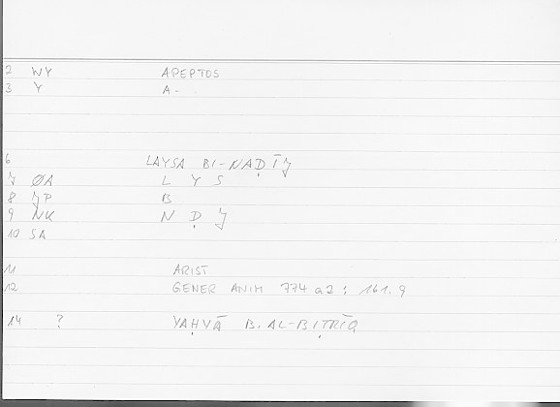 2 WY APEPTOS
3 Y A-
6 LAYSA BI-NAḌĪJ
7 ØA L Y S
8 JP B
9 NK N Ḍ J
10 SA
11 ARIST
12 GENER ANIM 774 a2 : 161.9
14 ? YAḤYĀ B. AL-BIṬRĪQ